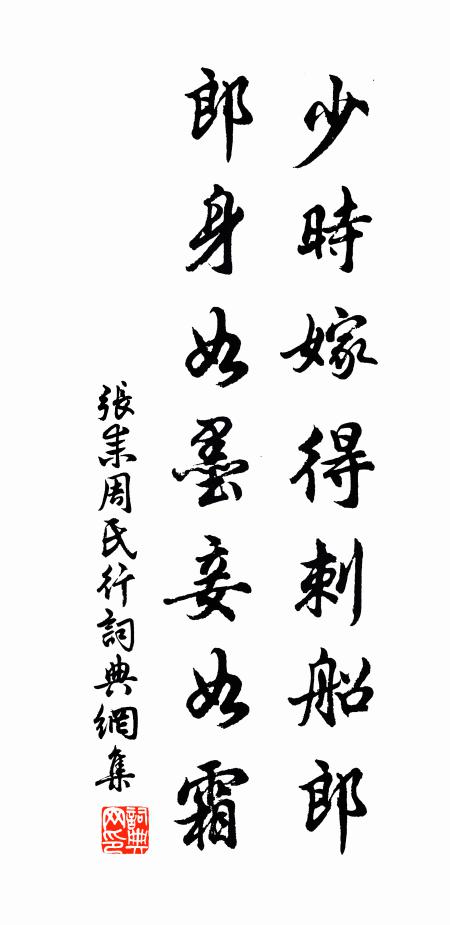 少時嫁得刺船郎
郎身如墨妾如霜
張耒周民行詞典網集
詞典網印